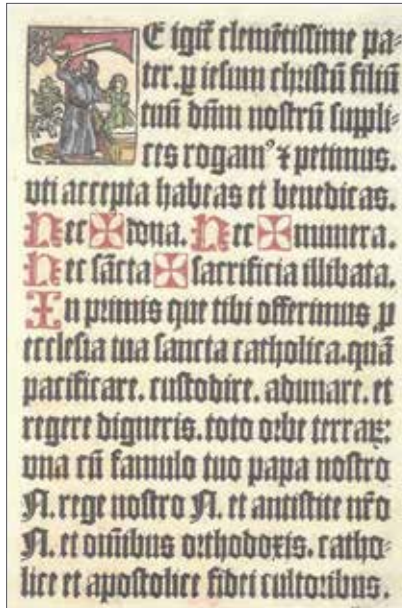 E igit̃ clemẽtissime pa-
ter. ꝑ iesum christũ filiũ
tuũ dñm nostrũ suppli-
ces rogamꝰ ⁊ petimus.
vti accepta habeas et benedicas.
Nec ✠ dona. Nec ✠ munera.
Nec sãcta ✠ sacrificia illibata.
In primis que tibi offerimus ꝑ
ecclesia tua sancta catholica. quã
pacificare. custodire. adunare. et
regere digneris. toto orbe terraꝝ:
vna cũ famulo tuo papa nostro
N. rege nostro N. et antistite nr̃o
N. et om̃ibus orthodoxis. catho-
lice et apostolice fidei cultoribus.